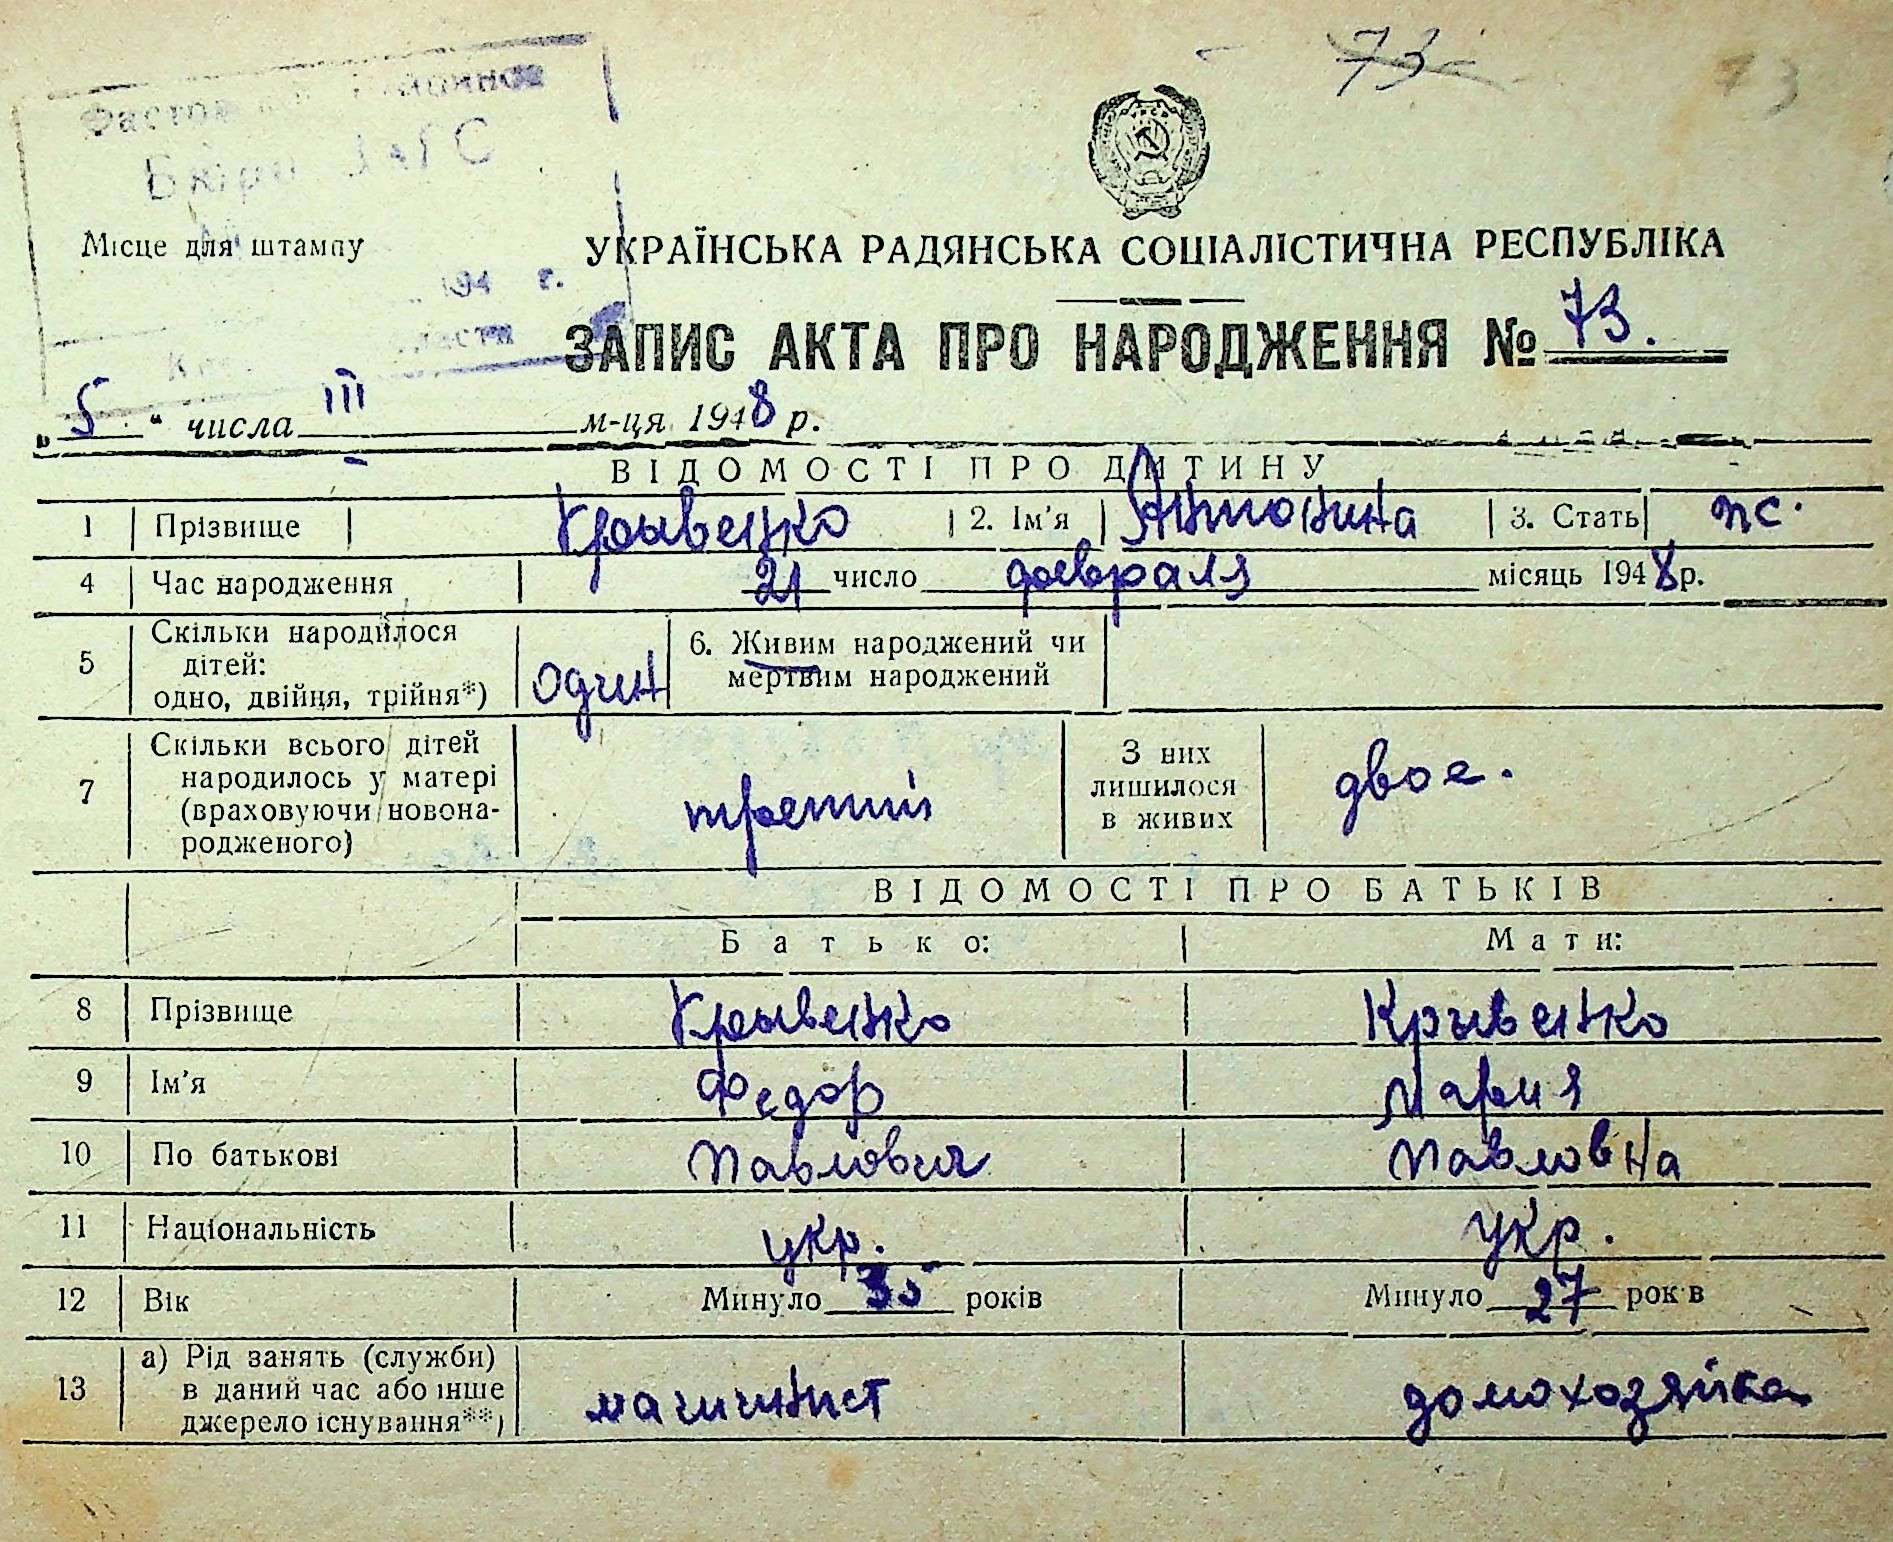 73
73
Бюро ЗАГС
Місце для штампу
194 г.
УРСР
УКРАЇНСЬКА РАДЯНСЬКА СОЦІАЛІСТИЧНА РЕСПУБЛІКА
ЗАПИС АКТА ПРО НАРОДЖЕННЯ № 73.
„5“ числа III м-ця 1948 р.
ВІДОМОСТІ ПРО ДИТИНУ
1 Прізвище Крывенко 2. Ім'я Антонина 3. Стать ж.
4 Час народження 21 число февраля місяць 1948 р.
5 Скільки народилося дітей: одно, двійня, трійня*) один 6. Живим народжений чи мертвим народжений
7 Скільки всього дітей народилось у матері (враховуючи новонародженого) третий З них лишилося в живих двое.
ВІДОМОСТІ ПРО БАТЬКІВ
Батько: Мати:
8 Прізвище Крывенко Крывенко
9 Ім'я Федор Мария
10 По батькові Павлович Павловна
11 Національність укр. укр.
12 Вік Минуло 35 років Минуло 27 років
13 а) Рід занять (служби) в даний час або інше джерело існування**) машинист домохозяйка